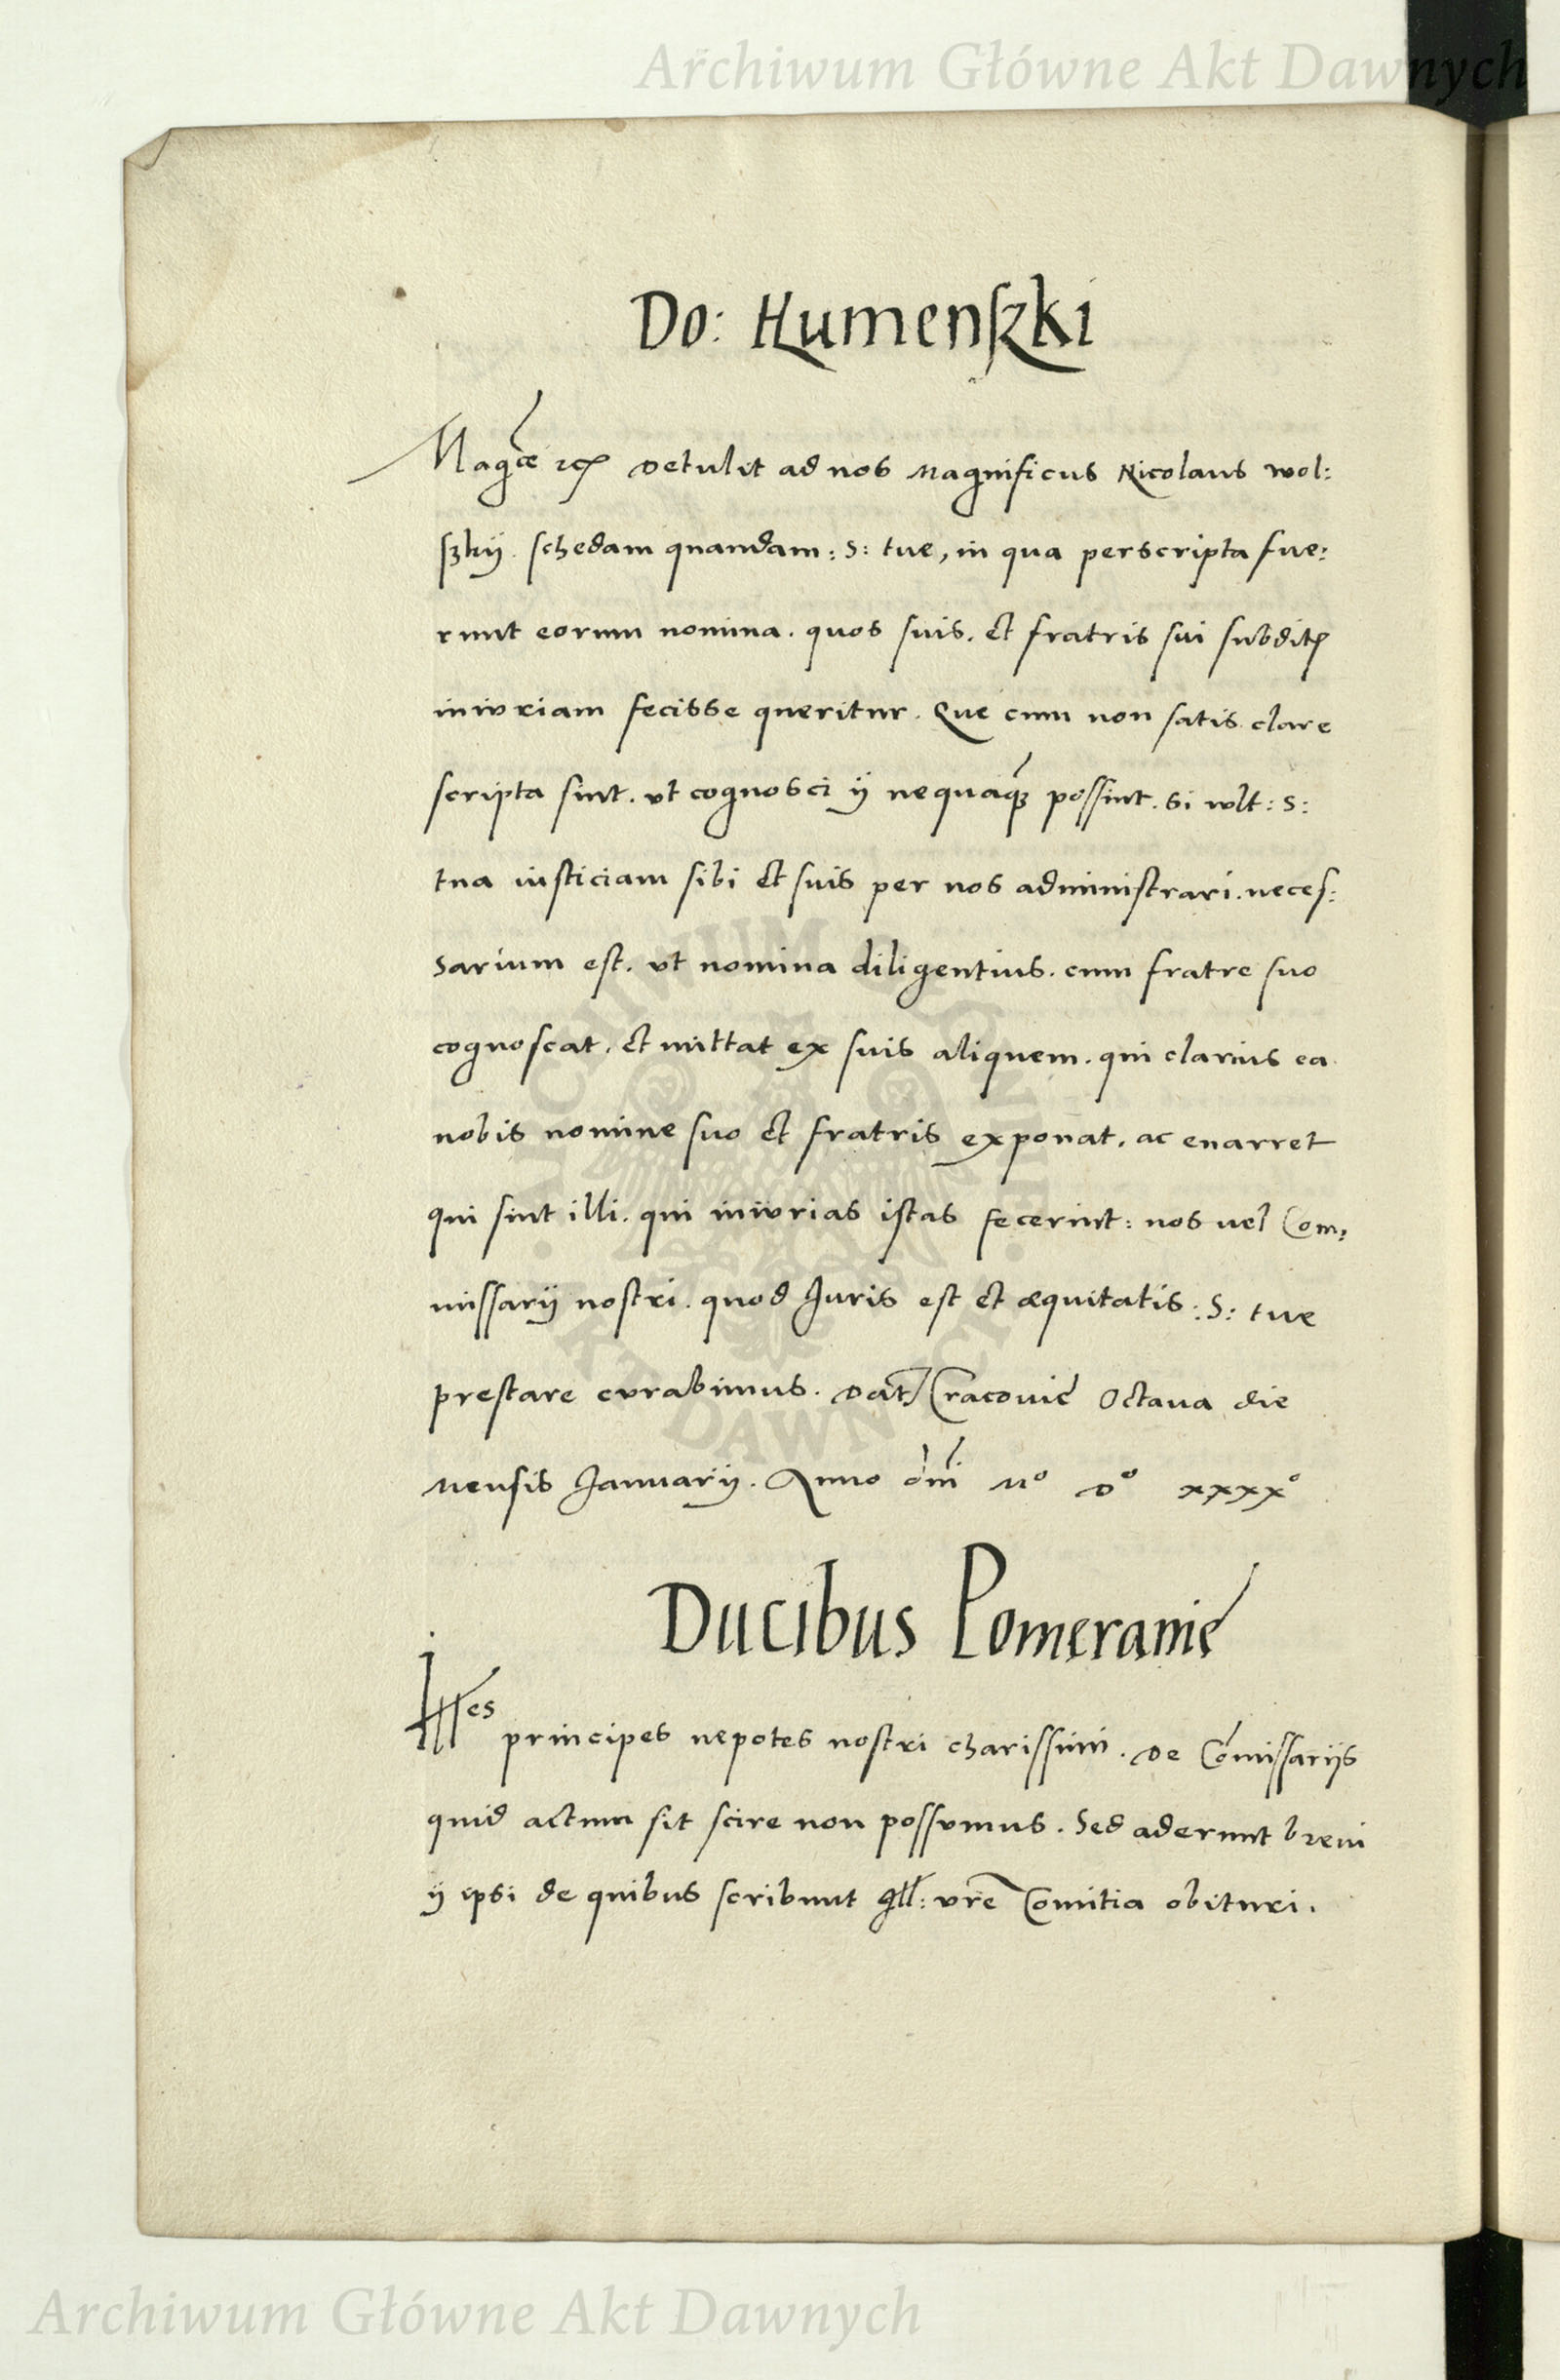 Archiwum Główne Akt Dawnych
Do: Humenſzki
Magce rcꝭ Detulit ad nos Magnificus Nicolaus wol:
ſzkij. ſchedam quandam: S: tue, in qua perscripta fue:
runt eorum nomina. quos ſuis. et fratris ſui ſubditꝭ
iniuriam fecisse queritur. Que cum non ſatis clare
scripta ſint. vt cognosci ij nequaqꝫ poſſint. Si wlt: S:
tua iuſticiam ſibi et ſuis per nos adminiſtrari. neceſ:
sarium eſt. vt nomina diligentius. cum fratre ſuo
cognoſcat. et mittat ex ſuis aliquem. qui clarius ea
nobis nomine ſuo et fratris exponat. ac enarret
qui ſint illi. qui iniurias iſtas fecerint: nos uel Com:
miſſarij noſtri. quod Iuris eſt et æquitatis: S: tue
preſtare curabimus. Dat Cracouie Octaua die
Mensis Januarij. Anno dni Mo Do xxxxo
ARCHIWUM GŁÓWNE AKT DAWNYCH
Ducibus Pomeranie
Illes principes nepotes noſtri chariſſimi. De Comiſſariis
quid actum ſit scire non poſſumus. Sed aderunt breui
ij ipsi de quibus ſcribunt Ill: vre Comitia obituri.
Archiwum Główne Akt Dawnych